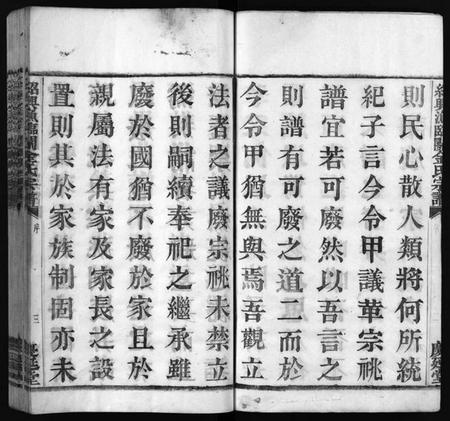 紹興漁臨關金氏宗譜
則民心散人類將何所統
紀子言今令甲議革宗祧
譜宜若可廢然以吾言之
則譜有可廢之道二而於
今令甲猶無與焉吾觀立
法者之議廢宗祧未禁立
後則嗣續奉祀之繼承雖
廢於國猶不廢於家且於
親屬法有家及家長之設
置則其於家族制固亦未
紹興漁臨關金氏宗譜
序
三